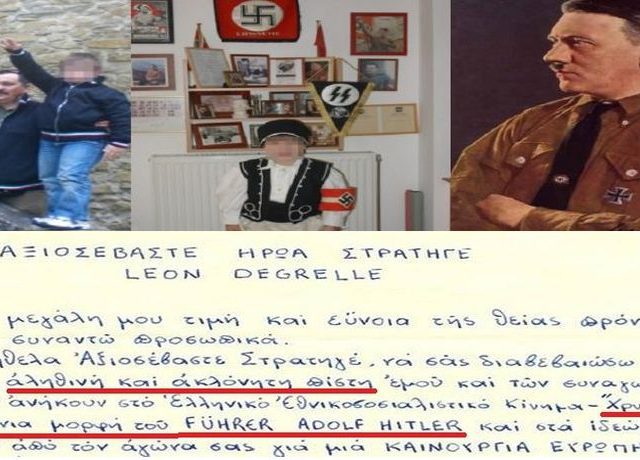 ΑΞΙΟΣΕΒΑΣΤΕ ΗΡΩΑ ΣΤΡΑΤΗΓΕ
LEON DEGRELLE
μεγάλη μου τιμή καί εὔνοια τῆς θείας πρόν
συναντῶ προσωπικά.
ηθελα Ἀξιοσέβαστε Στρατηγέ, νά σᾶς διαβεβαιώσω
ἀληθινή καί ἀκλόνητη πίστη ἐμοῦ καί τῶν συναγω
ἀνήκουν στό Ἑλληνικό Ἐθνικοσοσιαλιστικό Κίνημα - "Χρυ
νια μορφή τοῦ FÜHRER ADOLF HITLER καί στά ἰδεώ
ἀπό τόν ἀγώνα σας γιά μιά ΚΑΙΝΟΥΡΓΙΑ ΕΥΡΩΠΗ